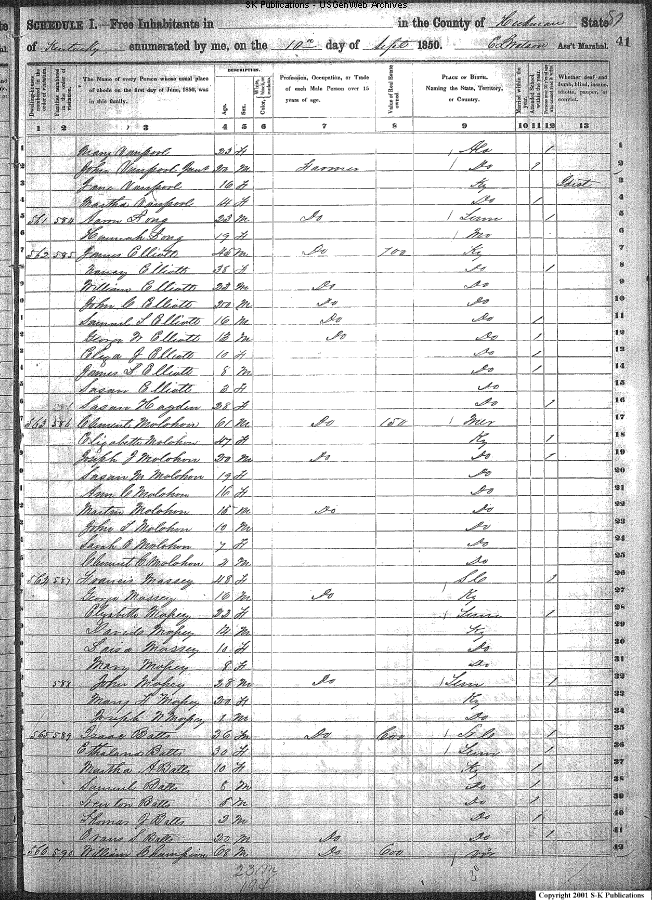 S-K Publications - USGenWeb Archives
SCHEDULE I.—Free Inhabitants in in the County of Hickman State
of Kentucky enumerated by me, on the 10th day of Sept 1850. Ass't Marshal. 41
The Name of every Person whose usual place of abode on the first day of June, 1850, was in this family.
DESCRIPTION.
Age.
Sex.
Profession, Occupation, or Trade of each Male Person over 15 years of age.
Value of Real Estate owned
PLACE OF BIRTH. Naming the State, Territory, or Country.
Married within the year.
Whether deaf and dumb, blind, insane, idiotic, pauper, or convict.
1 2 3 4 5 6 7 8 9 10 11 12 13
1 Mary Vanpool 23 f Ala 1
2 John Vanpool 20 m Farmer Do 1
3 Jane Vanpool 16 f Ky Idiot
4 Martha Vanpool 4 f Do 1
5 561 584 Aaron Long 23 m Do Tenn 1
6 Hannah Long 19 f Mo
7 562 585 James Elliott 45 m Do 100 Ky
8 Nancy Elliott 38 f Do 1
9 William Elliott 22 m Do Do
10 John C Elliott 20 m Do Do
11 Samuel L Elliott 16 m Do Do 1
12 George W Elliott 12 m Do Do 1
13 Eliza J Elliott 10 f Do 1
14 James L Elliott 8 m Do 1
15 Susan Elliott 2 f Do
16 Susan Hayden 28 f Do 1
17 563 586 Clement Molohon 61 m Do 150
18 Elizabeth Molohon 47 f Ky 1
19 Joseph J Molohon 20 m Do Do 1
20 Susan M Molohon 19 f Do
21 Ann C Molohon 16 f Do
22 Martin Molohon 15 m Do Do
23 John L Molohon 10 m Do
24 Sarah A Molohon 7 f Do
25 Clement C Molohon 2 m Do
26 564 587 Francis Massey 48 f S C 1
27 George Massey 16 m Do Ky
28 Elizabeth Massey 22 f Tenn 1
29 14 m Ky
30 Louisa Massey 10 f Do
31 Mary Massey 8 f Do
32 588 John Massey 28 m Do Tenn 1
33 Mary Massey 20 f Ky
34 Joseph W Massey 1 m Do
35 565 589 Isaac Batts 36 m Do 600 N C 1
36 Batts 30 f Tenn 1
37 Martha A Batts 10 f Ky 1
38 Samuel Batts 8 m Do 1
39 Newton Batts 5 m Do 1
40 Thomas J Batts 2 m Do
41 Batts 20 m Do Do 1
42 566 590 William Champion 68 m Do 600
Copyright 2001 S-K Publications